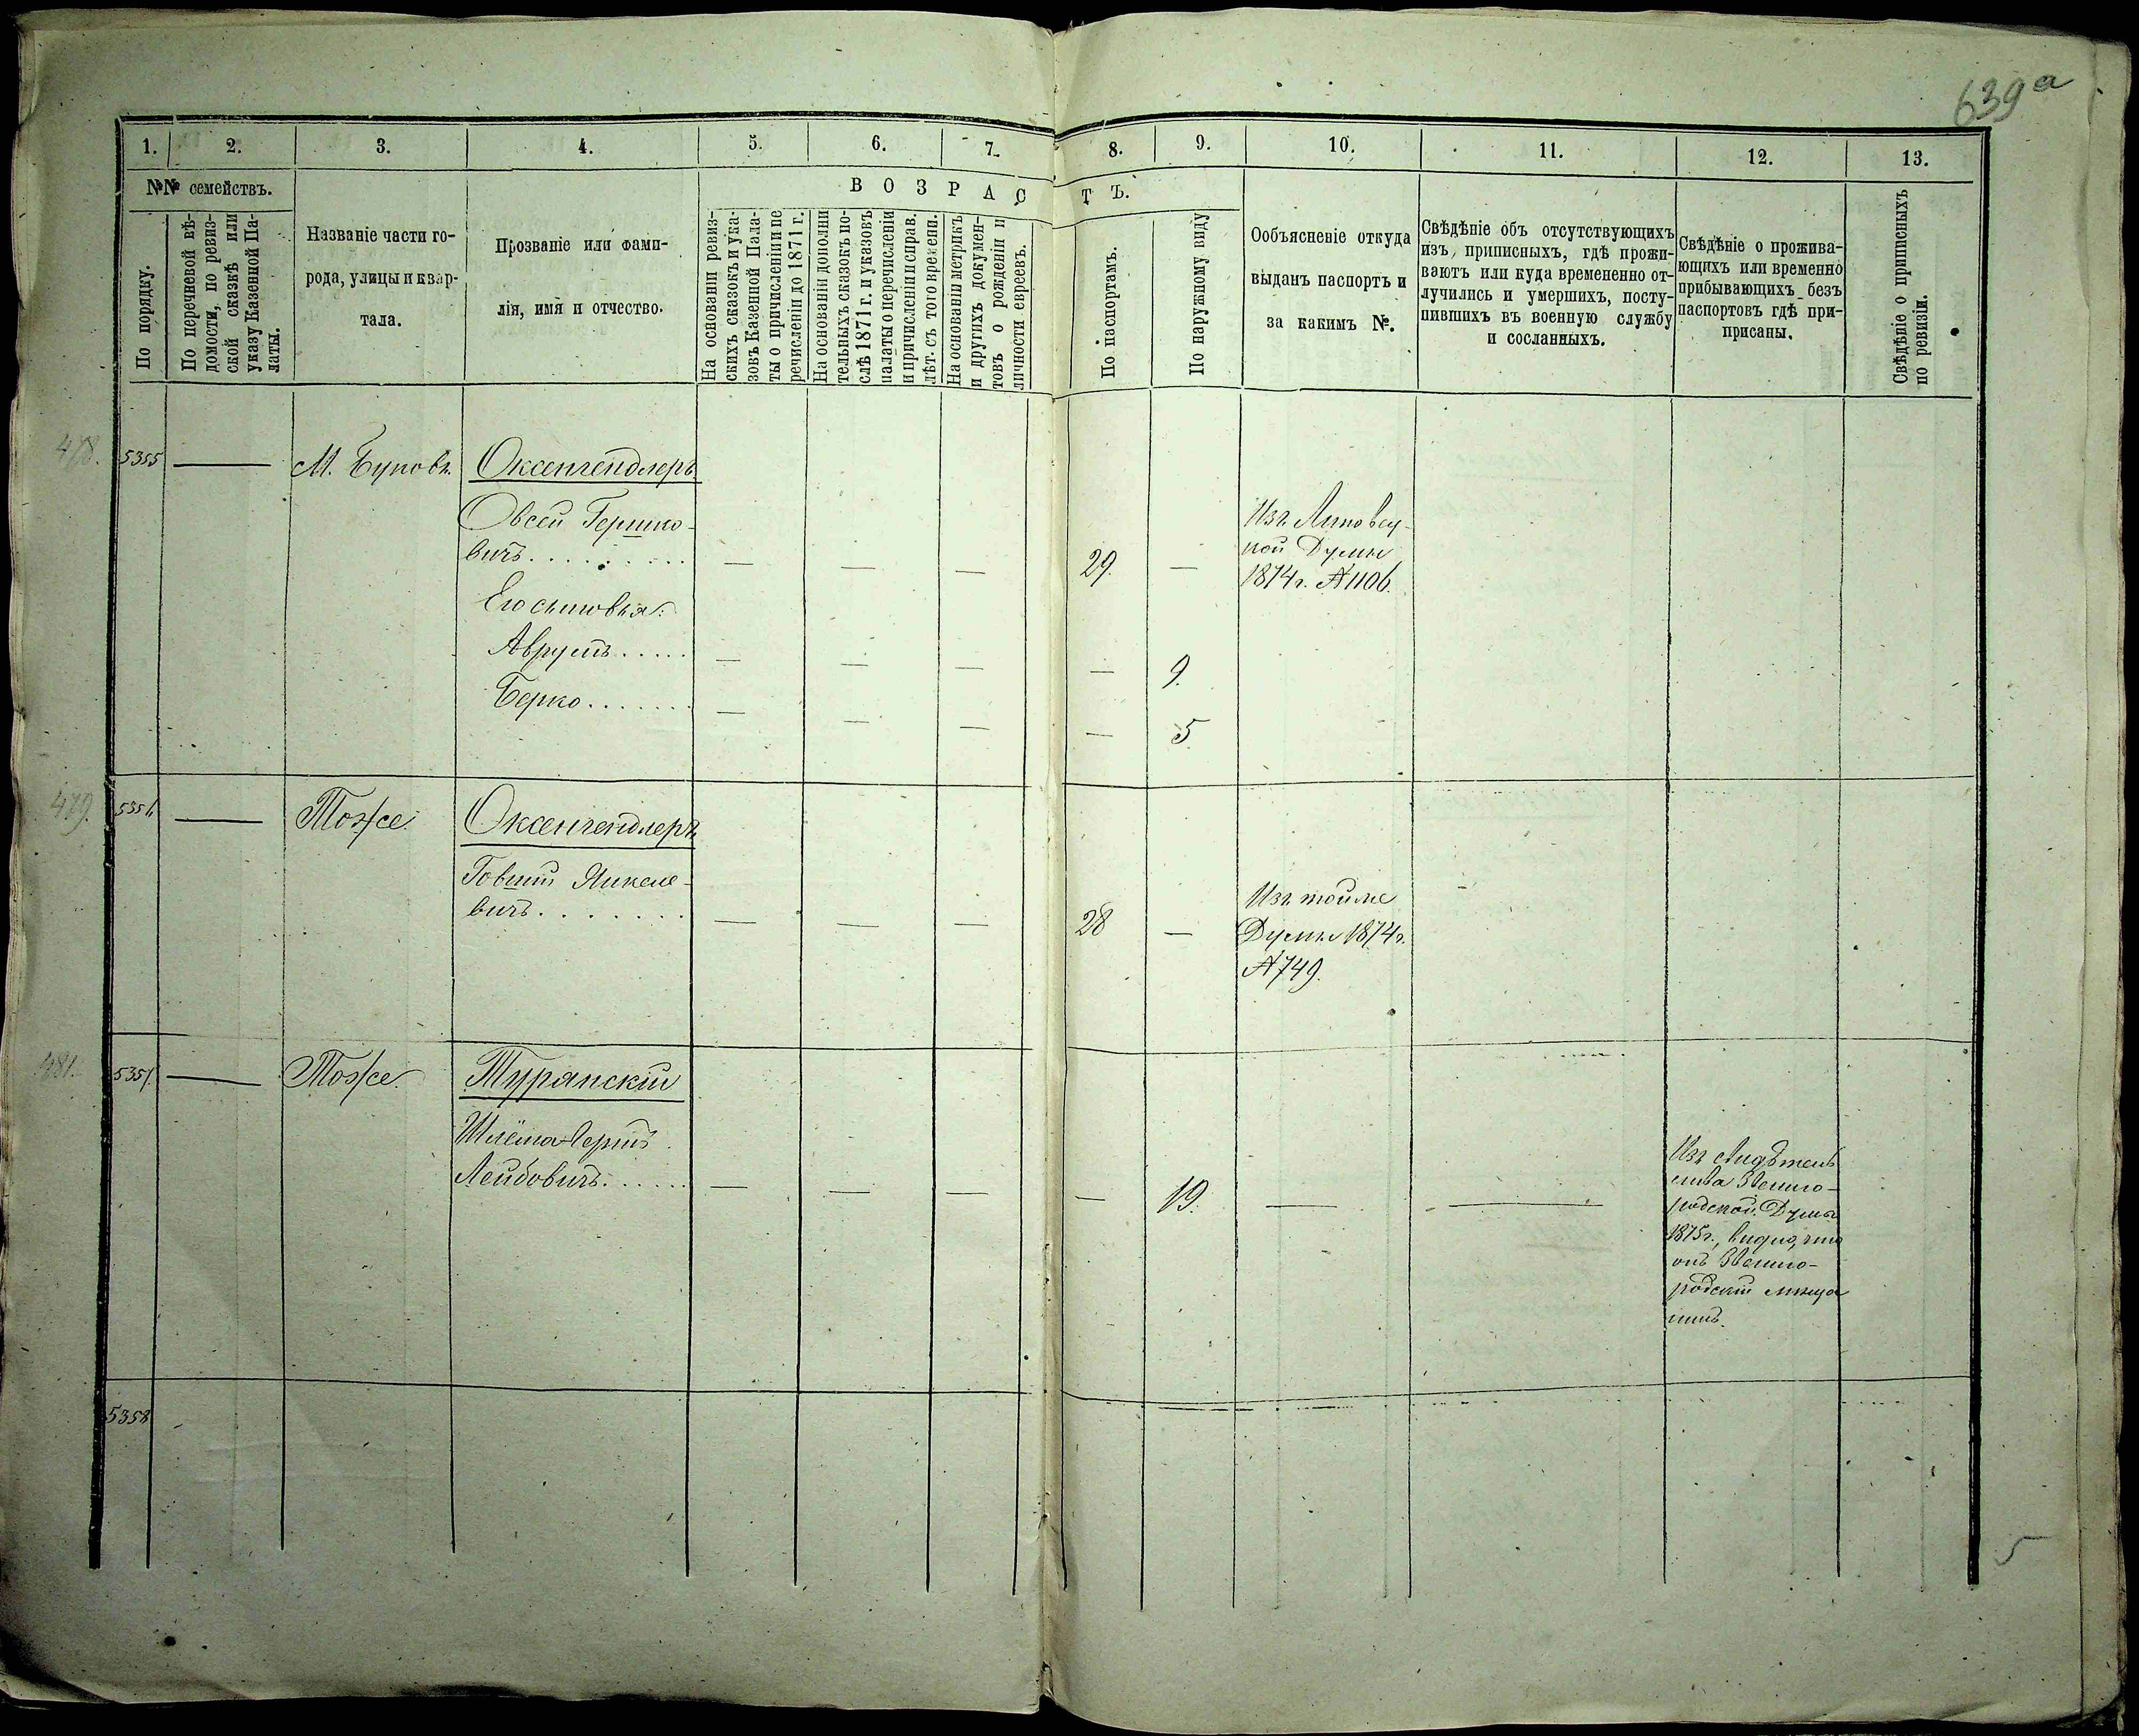 639 а
1. 2. 3. 4. 5. 6. 7. 8. 9. 10. 11. 12. 13.
№№ семействъ.
По порядку.
По перечневой вѣ-
домости, по ревиз-
ской сказкѣ или
указу Казенной Па-
латы.
Названіе части го-
рода, улицы и квар-
тала.
Прозваніе или фами-
лія, имя и отчество.
ВОЗРАСТЪ.
На основаніи ревиз-
скихъ сказокъ и ука-
зовъ Казенной Пала-
ты о причисленіи и пе
речисленіи до 1871 г.
На основаніи дополни
тельныхъ сказокъ по-
слѣ 1871 г. и указовъ
палаты о перечисленіи
и причисленіи исправ.
лѣт. съ того времени.
На основаніи метрикъ
и другихъ докумен-
товъ о рожденіи и
личности евреевъ.
По паспортамъ.
По наружному виду
Ообъясненіе откуда
выданъ паспортъ и
за какимъ №.
Свѣдѣніе объ отсутствующихъ
изъ приписныхъ, гдѣ прожи-
ваютъ или куда временно от-
лучились и умершихъ, посту-
пившихъ въ военную службу
и сосланныхъ.
Свѣдѣніе о прожива-
ющихъ или временно
прибывающихъ безъ
паспортовъ гдѣ при-
присаны.
Свѣдѣніе о приписныхъ
по ревизіи.
478. 5355 — М. Буковъ Оксенгендлеръ
Овсей Гершко-
вичъ . . . . . . . . — — — 29. —
Изъ Липовец-
кой Думы
1874 г. №1106.
Его сыновья:
Аврумъ . . . . . — — — — 9.
Берко . . . . . . . — — — — 5
479. 5356 — Тоже. Оксенгендлеръ
Янкеле-
вичъ . . . . . . . — — — 28 —
Изъ тойже
Думы 1874 г.
№749.
481. 5357. — Тоже. Турянскій
Шлёма Герть
Лейбовичъ . . . . . — — — — 19. — —
Изъ свидѣтель
ства Звениго-
родской Думы
1875 г., видно, что
онъ Звениго-
родскій мѣща
нинъ.
5358
5